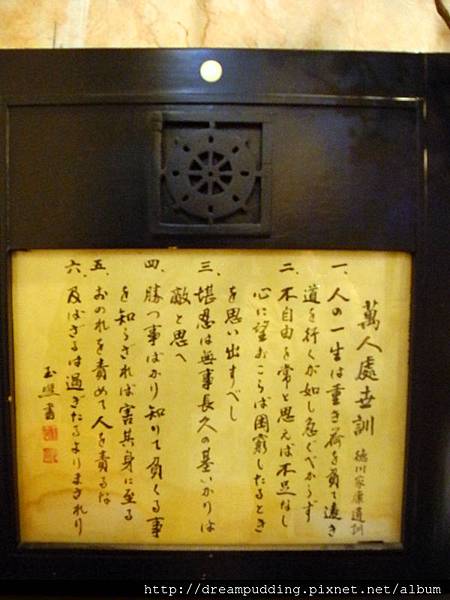 萬人處世訓 徳川家康遺訓
一、人の一生は重き荷を負て遠き
道を行くが如し急ぐべからず
二、不自由を常と思えば不足なし
心に望おこらば困窮したるとき
を思い出すべし
三、堪忍は無事長久の基いかりは
敵と思へ
四、勝つ事ばかり知りて負くる事
を知らざれば害其身に至る
五、おのれを責めて人を責るな
六、及ばざるは過ぎたるよりまされり
書
http://dreampudding.pixnet.net/album